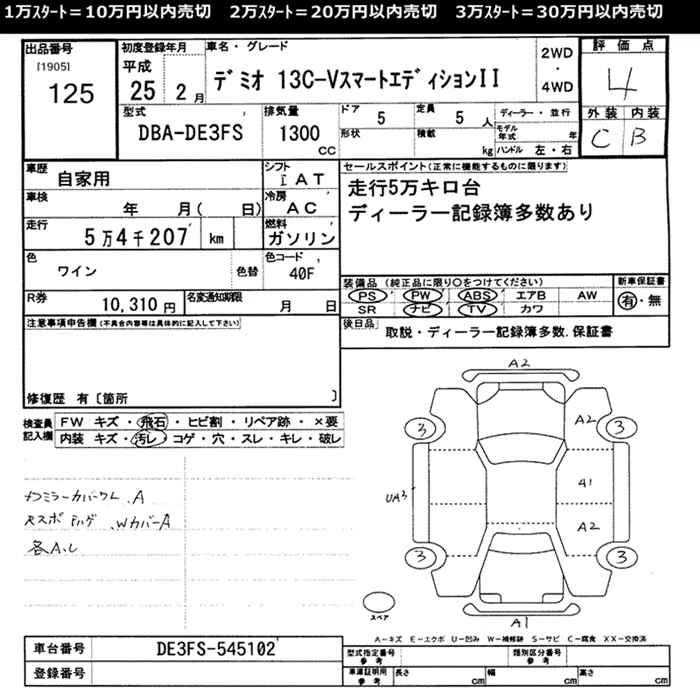 1万ｽﾀｰﾄ＝10万円以内売切　2万ｽﾀｰﾄ＝20万円以内売切　3万ｽﾀｰﾄ＝30万円以内売切
出品番号 [1905] 125
初度登録年月 平成 25 年 2 月
車名・グレード デミオ 13C-VスマートエディションII
2WD・4WD
評価点 4
型式 DBA-DE3FS
排気量 1300 CC
ドア 5 定員 5 人
形状 積載 kg
ディーラー・並行
モデル年式 年
ハンドル 左・右
外装 内装
C B
車歴 自家用
シフト IAT
車検 年 月( 日)
冷房 AC
走行 5万4千207 km
燃料 ガソリン
色 ワイン 色替
色コード 40F
R券 10,310 円
名変通知期限 月 日
セールスポイント(正常に機能するものに限ります)
走行5万キロ台
ディーラー記録簿多数あり
装備品 (純正品に限り○をつけてください)
PS PW ABS エアB AW
SR ナビ TV カワ
新車保証書
有・無
後日品 取説・ディーラー記録簿多数.保証書
注意事項申告欄(不具合内容等は具体的に記入して下さい)
修復歴 有〔箇所 〕
検査員記入欄
FW キズ・飛石・ヒビ割・リペア跡・×要
内装 キズ・汚レ・コゲ・穴・スレ・キレ・破レ
ミラーカバーワレ .A
WカバーA
各A.
A2
3 A2 3
UA3 A1
A2
3 3
A1
スペア
A－キズ E－エクボ U－凹み W－補修跡 S－サビ C－腐食 XX－交換済
車台番号 DE3FS-545102
登録番号
型式指定番号 参考
類別区分番号 参考
車庫証明用 参考 長さ cm 幅 cm 高さ cm